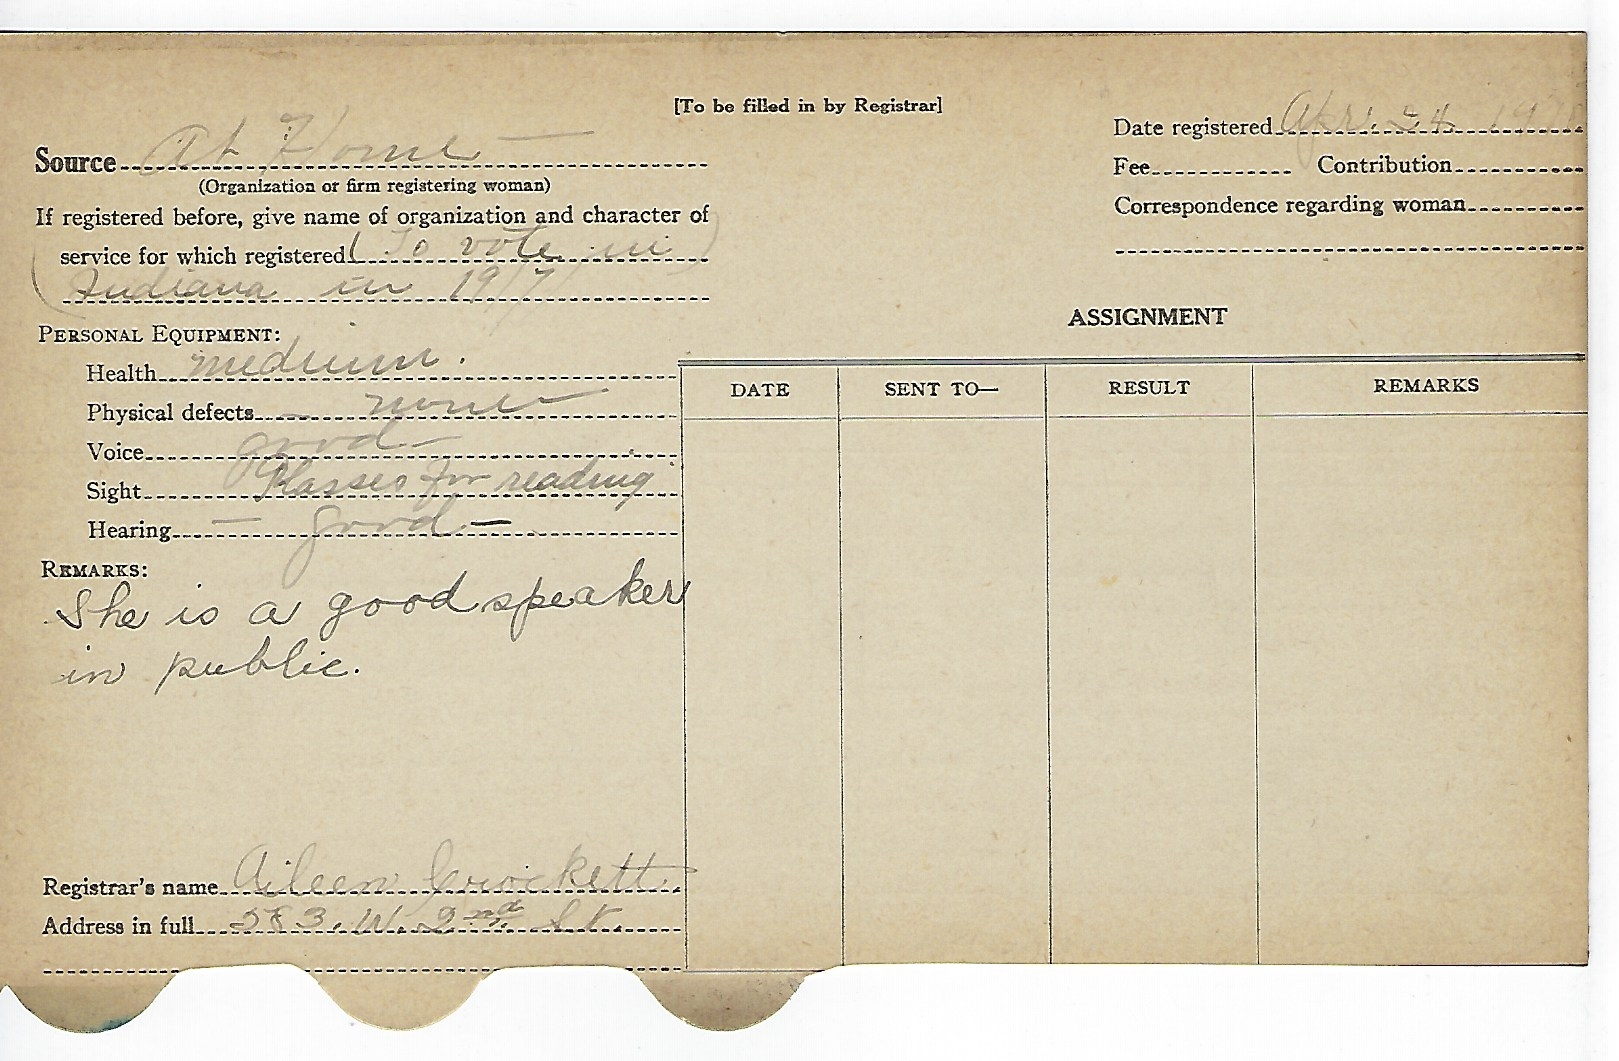 [To be filled in by Registrar]
Date registered Apr. 24 191
Source At Home
Fee Contribution
(Organization or firm registering woman)
Correspondence regarding woman
If registered before, give name of organization and character of
service for which registered (To vote in)
(Indiana in 1917)
ASSIGNMENT
PERSONAL EQUIPMENT:
Health medium.
DATE SENT TO— RESULT REMARKS
Physical defects — none —
Voice good —
Sight Glasses for reading
Hearing — good —
REMARKS:
She is a good speaker
in public.
Registrar's name Aileen Crockett.
Address in full 583. W. 2nd St.